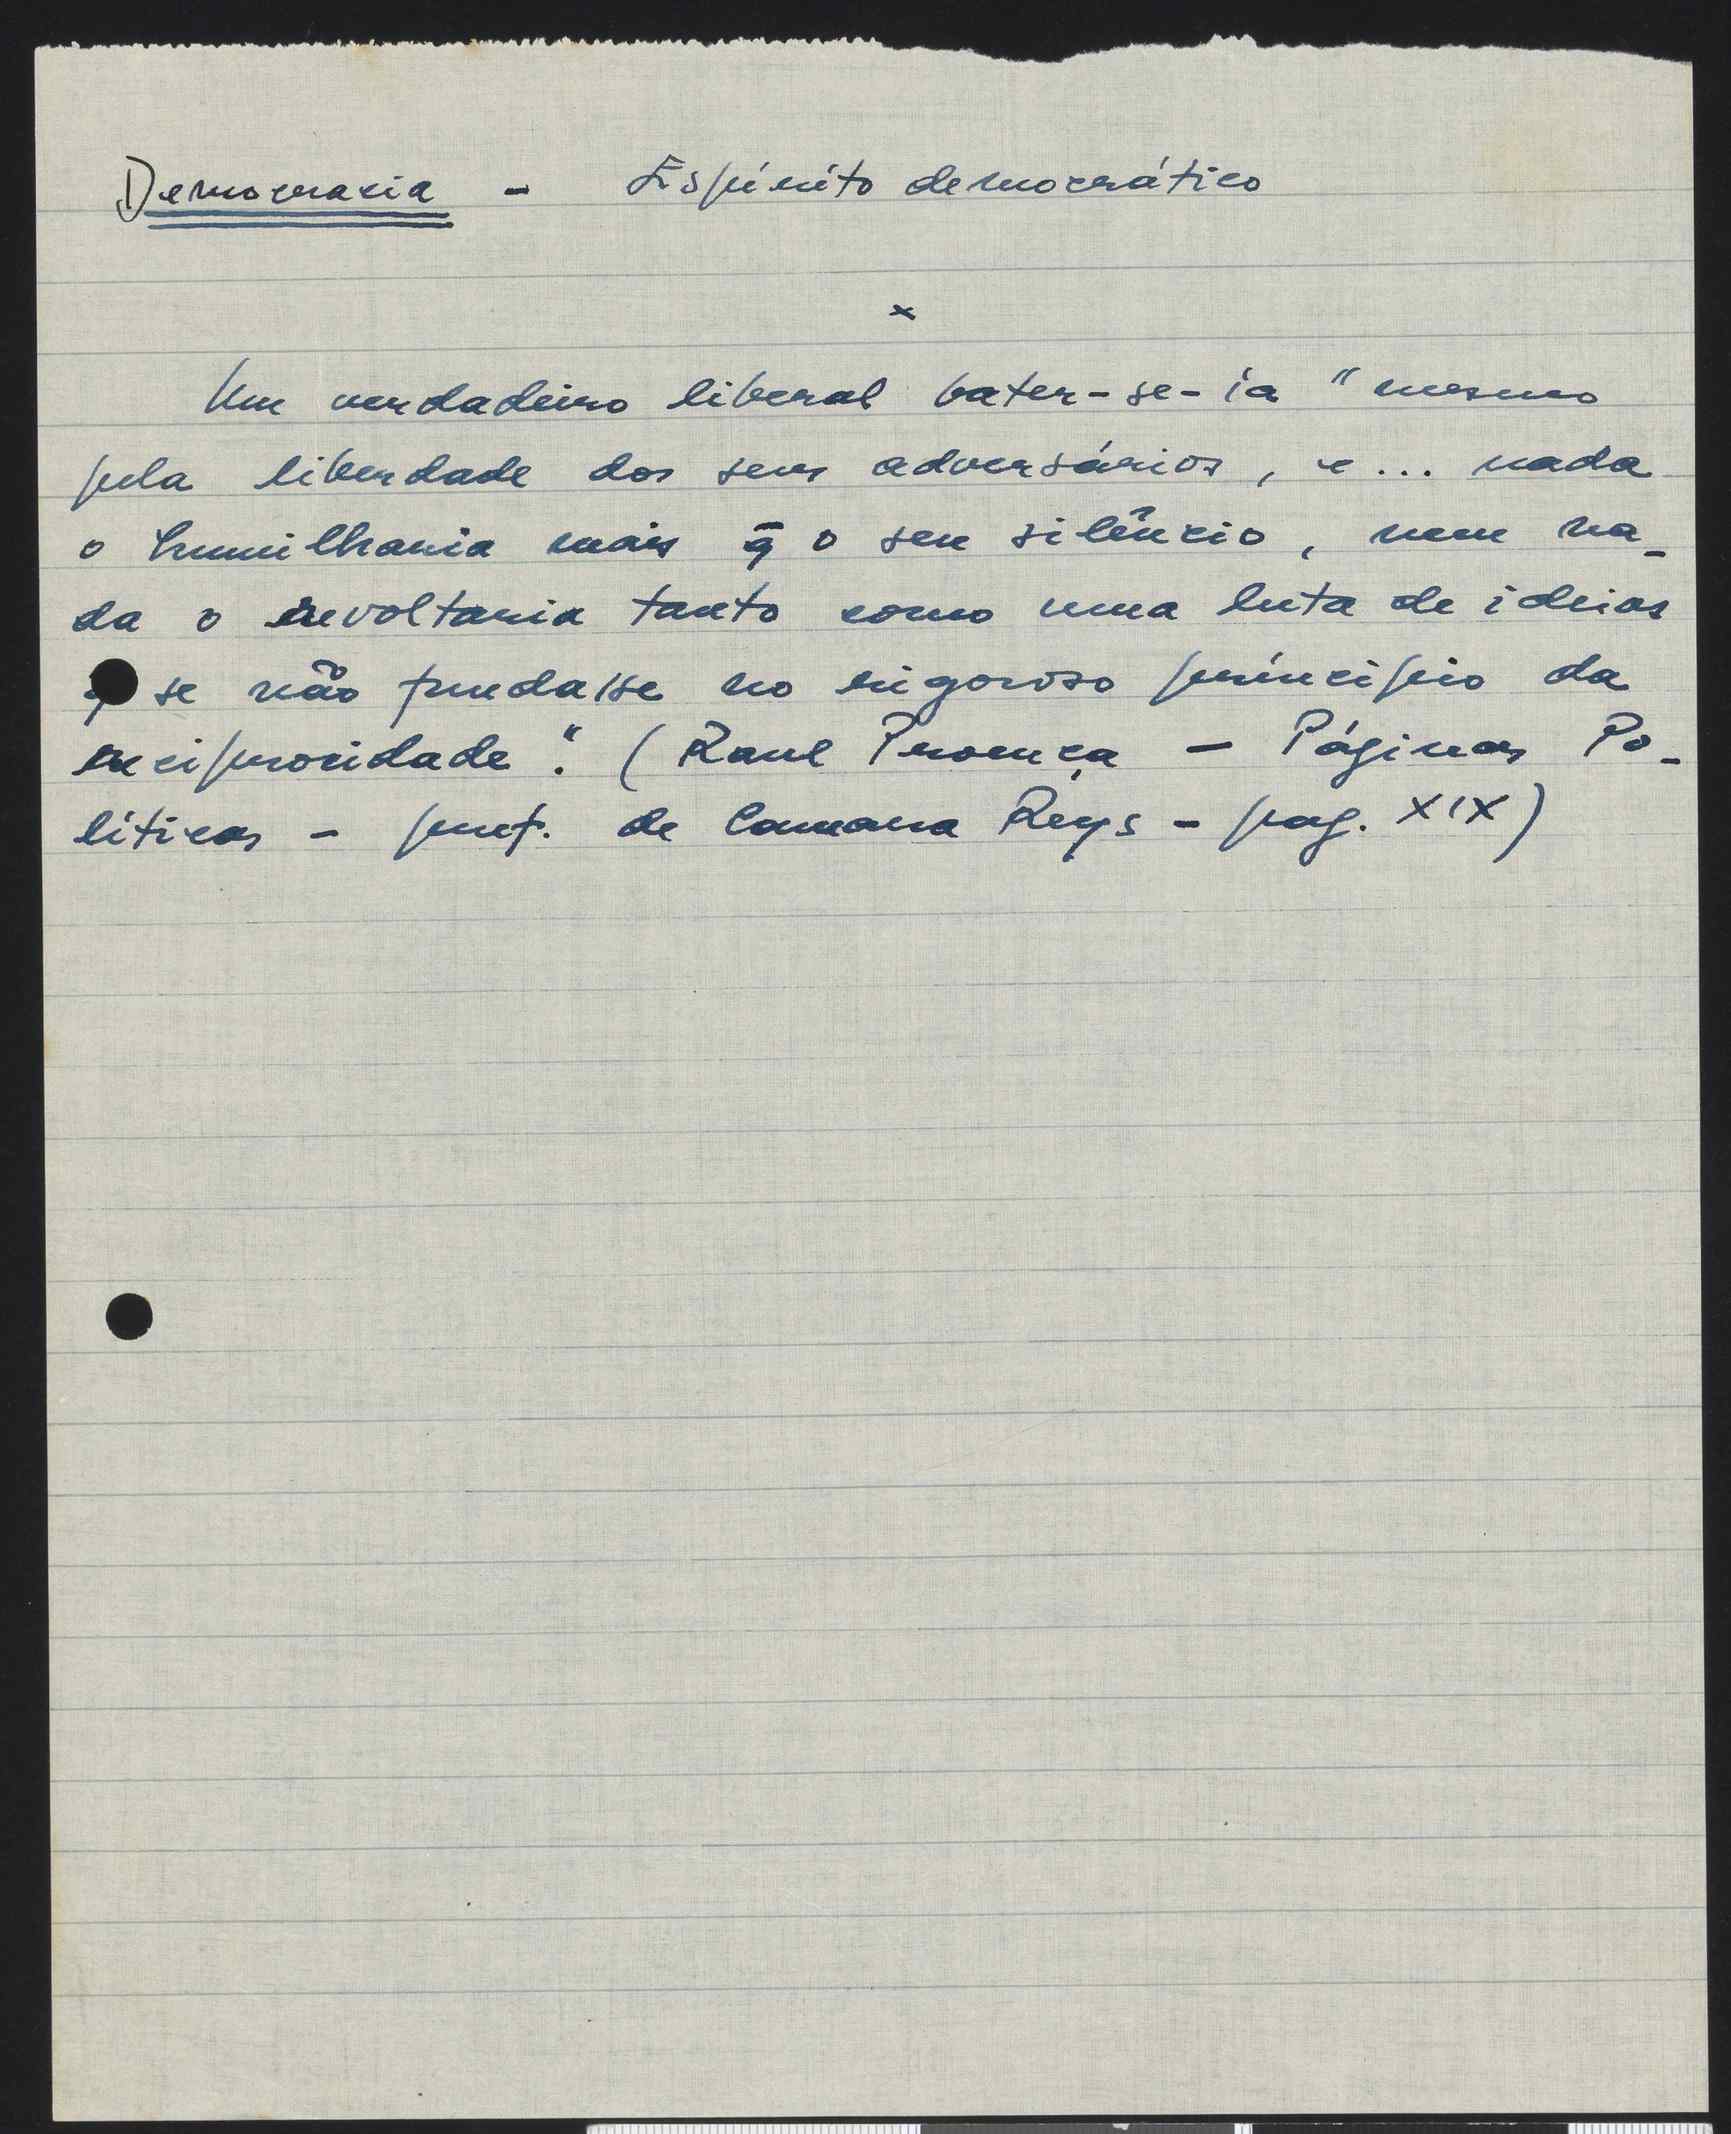 Democracia - Espírito democrático
x
Um verdadeiro liberal bater-se-ia "mesmo
pela liberdade dos seus adversários, e... nada
o humilharia mais q̄ o seu silêncio, nem na-
da o revoltaria tanto como uma luta de ideias
q̄ se não fundasse no rigoroso príncipio da
reciprocidade". (Raul Proença - Páginas Po-
líticas - pref. de Camara Reys - pag. XIX)